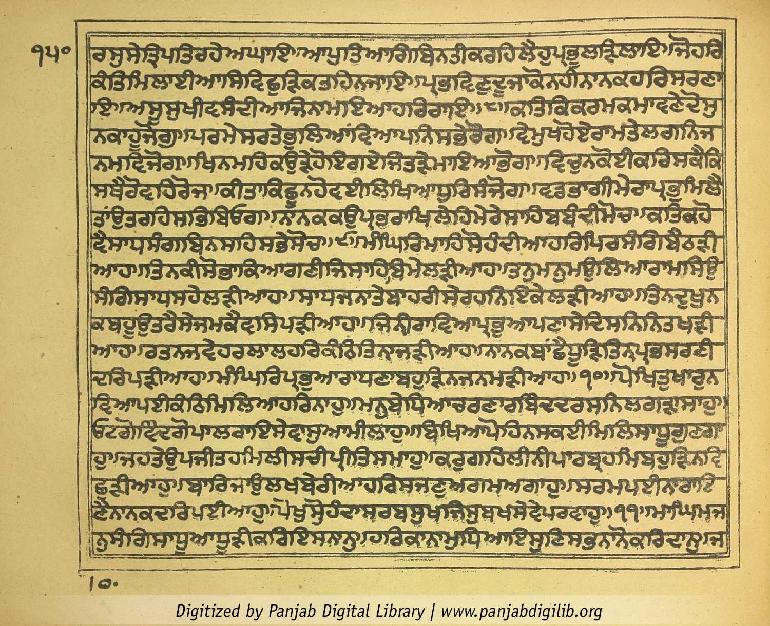 ੧੫੦
ਰਸੁਸੇਤ੍ਰਿਪਤਿਰਹੇਅਘਾਇ॥ਆਪੁਤਿਆਗਿਬਿਨਤੀਕਰਹਿਲੇਹੁਪ੍ਰਭੂਲੜਿਲਾਇ॥ਜੋਹਰਿ
ਕੰਤਿਮਿਲਾਈਆਸਿਵਿਛੁੜਿਕਤਹਿਨਜਾਇ॥ਪ੍ਰਭਵਿਣੁਦੂਜਾਕੋਨਹੀਨਾਨਕਹਰਿਸਰਣਾ
ਇ॥ਅਸੂਸੁਖੀਵਸੰਦੀਆਜਿਨਾਮਇਆਹਰਿਰਾਇ॥੮॥ਕਤਿਕਿਕਰਮਕਮਾਵਣੇਦੋਸੁ
ਨਕਾਹੂਜੋਗੁ॥ਪਰਮੇਸਰਤੇਭੁਲਿਆਂਵਿਆਪਨਿਸਭੇਰੋਗ॥ਵੇਮੁਖਹੋਏਰਾਮਤੇਲਗਨਿਜ
ਨਮਵਿਜੋਗ॥ਖਿਨਮਹਿਕਉੜੇਹੋਇਗਏਜਿਤੜੇਮਾਇਆਭੋਗ॥ਵਿਚੁਨਕੋਈਕਰਿਸਕੈਕਿ
ਸਥੈਰੋਵਹਿਰੋਜ॥ਕੀਤਾਕਿਛੂਨਹੋਵਈਲਿਖਿਆਧੁਰਿਸੰਜੋਗ॥ਵਡਭਾਗੀਮੇਰਾਪ੍ਰਭੁਮਿਲੈ
ਤਾਂਉਤਰਹਿਸਭਿਬਿਓਗ॥ਨਾਨਕਕਉਪ੍ਰਭਰਾਖਿਲੇਹਿਮੇਰੇਸਾਹਿਬਬੰਦੀਮੋਚ॥ਕਤਿਕਹੋ
ਵੈਸਾਧਸੰਗੁਬਿਨਸਹਿਸਭੇਸੋਚ॥੯॥ਮੰਘਿਰਿਮਾਹਿਸੋਹੰਦੀਆਹਰਿਪਿਰਸੰਗਿਬੈਠੜੀ
ਆਹ॥ਤਿਨਕੀਸੋਭਾਕਿਆਗਣੀਜਿਸਾਹਿਬਿਮੇਲੜੀਆਹ॥ਤਨੁਮਨੁਮਉਲਿਆਰਾਮਸਿਉ
ਸੰਗਿਸਾਧਸਹੇਲੜੀਆਹ॥ਸਾਧਜਨਾਤੇਬਾਹਰੀਸੇਰਹਨਿਇਕੇਲੜੀਆਹ॥ਤਿਨਦੁਖੁਨ
ਕਬਹੂਉਤਰੈਸੇਜਮਕੈਵਸਿਪੜੀਆਹ॥ਜਿਨੀਰਾਵਿਆਪ੍ਰਭੁਆਪਣਾਸੇਦਿਸਨਿਨਿਤਖੜੀ
ਆਹ॥ਰਤਨਜਵੇਹਰਲਾਲਹਰਿਕੰਠਿਤਿਨਾਜੜੀਆਹ॥ਨਾਨਕਬਾਂਛੈਧੂੜਿਤਿਨਪ੍ਰਭਸਰਣੀ
ਦਰਿਪੜੀਆਹ॥ਮੰਘਿਰਿਪ੍ਰਭੁਆਰਾਧਣਾਬਹੁੜਿਨਜਨਮੜੀਆਹ॥੧੦॥ਪੋਖਿਤੁਖਾਰੁਨ
ਵਿਆਪਈਕੰਠਿਮਿਲਿਆਹਰਿਨਾਹੁ॥ਮਨੁਬੇਧਿਆਚਰਣਾਰਬਿੰਦਦਰਸਨਿਲਗੜਾਸਾਹੁ॥
ਓਟਗੋਵਿੰਦਗੋਪਾਲਰਾਇਸੇਵਾਸੁਆਮੀਲਾਹੁ॥ਬਿਖਿਆਪੋਹਿਨਸਕਈਮਿਲਿਸਾਧੂਗੁਣਗਾ
ਹੁ॥ਜਹਤੇਉਪਜੀਤਹਮਿਲੀਸਚੀਪ੍ਰੀਤਿਸਮਾਹੁ॥ਕਰੁਗਹਿਲੀਨੀਪਾਰਬ੍ਰਹਮਿਬਹੁੜਿਨਵਿ
ਛੁੜੀਆਹੁ॥ਬਾਰਿਜਾਉਲਖਬੇਰੀਆਹਰਿਸਜਣੁਅਗਮਅਗਾਹੁ॥ਸਰਮਪਈਨਾਰਾਇ
ਣੈਨਾਨਕਦਰਿਪਈਆਹੁ॥ਪੋਖੁਸੋੁਹੰਦਾਸਰਬਸੁਖਜਿਸੁਬਖਸੇਵੇਪਰਵਾਹੁ॥੧੧॥ਮਾਘਿਮਜ
ਨੁਸੰਗਿਸਾਧੂਆਧੂੜੀਕਰਿਇਸਨਾਨੁ॥ਹਰਿਕਾਨਾਮੁਧਿਆਇਸੁਣਿਸਭਨਾਨੋਕਰਿਦਾਨੁ॥ਜ
Digitized by Panjab Digital Library | www.panjabdigilib.org